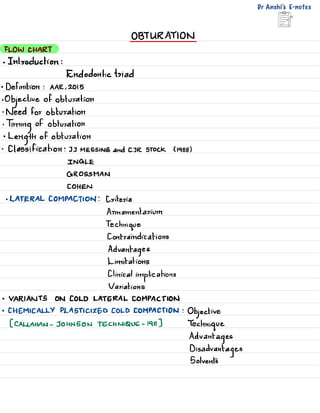 Dr Anshi's E-notes
OBTURATION
FLOW CHART
• Introduction:
Endodontic triad
• Definition : AAE, 2015
• Objective of obturation
• Need for obturation
• Timing of obturation
• Length of obturation
• Classification: JJ MESSING and CJR STOCK (1988)
INGLE
GROSSMAN
COHEN
• LATERAL COMPACTION: Criteria
Armamentarium
Technique
Contraindications
Advantages
Limitations
Clinical implications
Variations
• VARIANTS ON COLD LATERAL COMPACTION
• CHEMICALLY PLASTICIZED COLD COMPACTION : Objective
[CALLAHAN - JOHNSON TECHNIQUE - 1911] Technique
Advantages
Disadvantages
Solvents